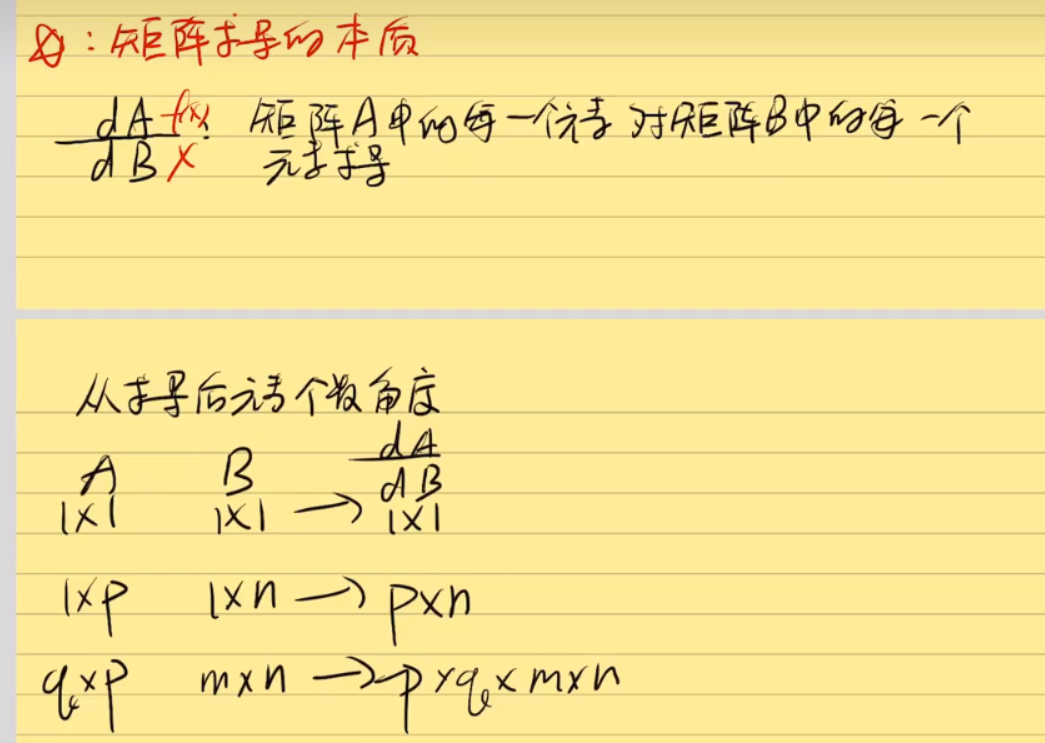 Q:矩阵求导的本质
dA f(x)
dB x : 矩阵A中的每一个元素对矩阵B中的每一个
元素求导
从求导后元素个数角度
A B dA
dB
1×1 1×1 → 1×1
1×p 1×n → p×n
q×p m×n → p×q×m×n